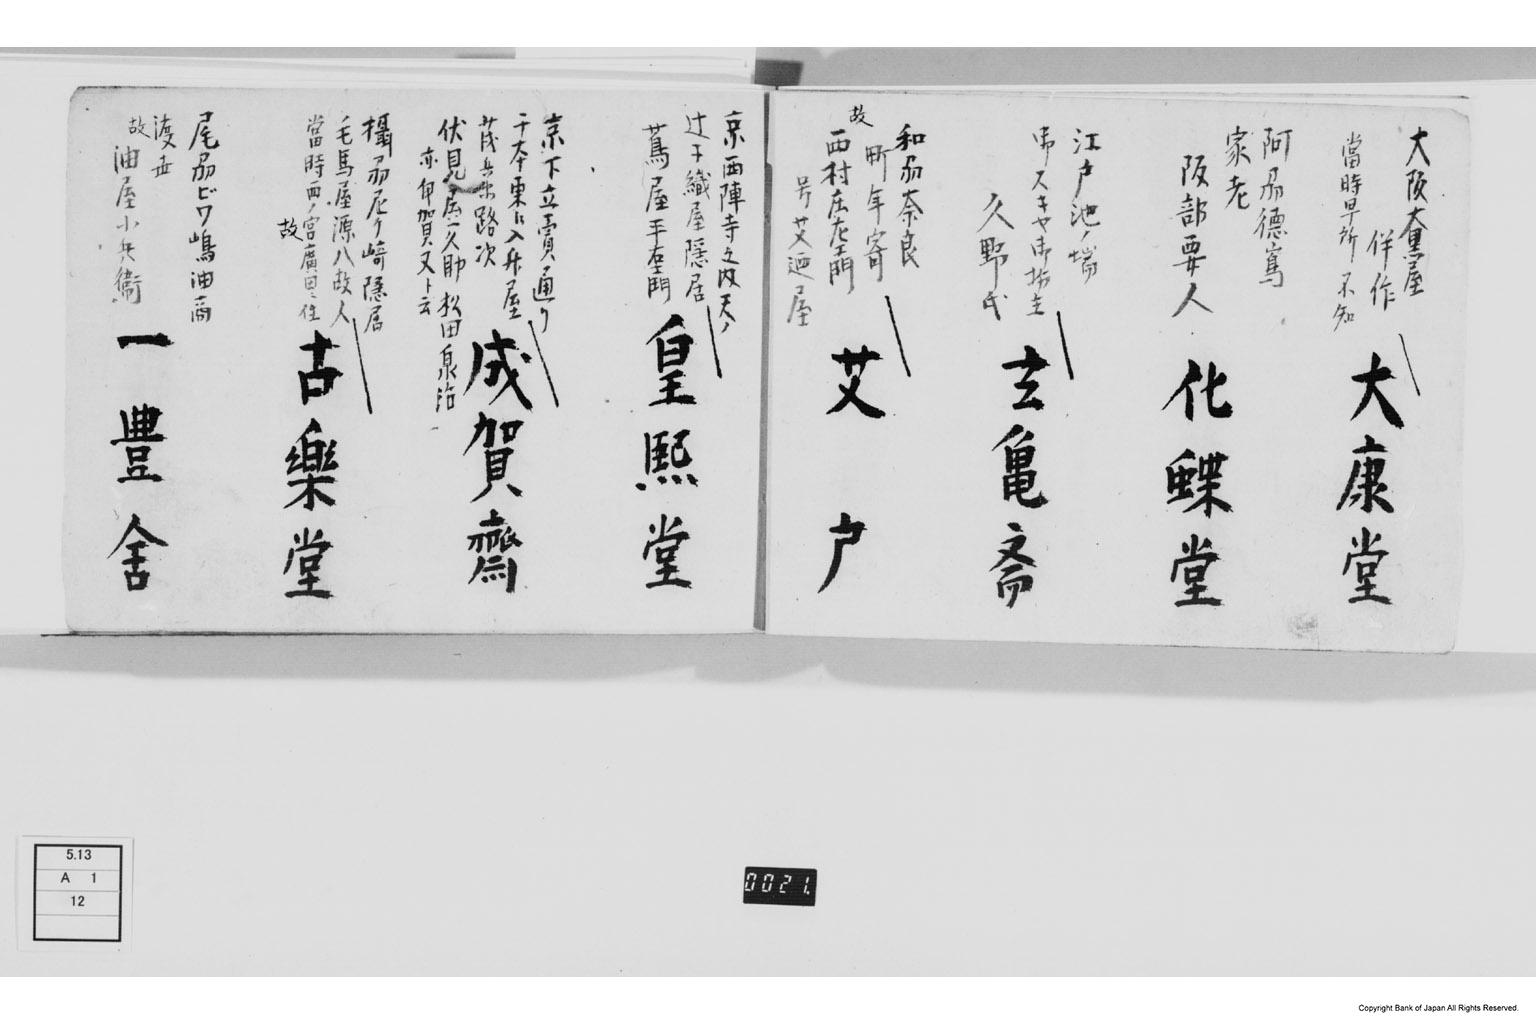 大阪大黒屋
伴作
當時早所不知
大康堂
阿州德嶌
家老
阪部要人
化蝶堂
江戸池ノ端
御スキヤ御坊主
久野氏
玄亀斎
和州奈良
町年寄
故
西村庄左エ門
号艾廼屋
艾戸
京西陣寺之内天ノ
辻子織屋隠居
蔦屋平右エ門
皇熙堂
京下立賣通り
千本東に入舛屋
茂兵衛路次
伏見屋久助松田泉治
亦伊賀又ト云
成賀齋
攝州尼ヶ崎隠居
毛馬屋源八故人
當時西ノ宮廣田ニ住
故
古樂堂
尾州ビワ嶋油商
渡世
故
油屋小兵衞
一豊舍
5.13
A 1
12
0021
Copyright Bank of Japan All Rights Reserved.